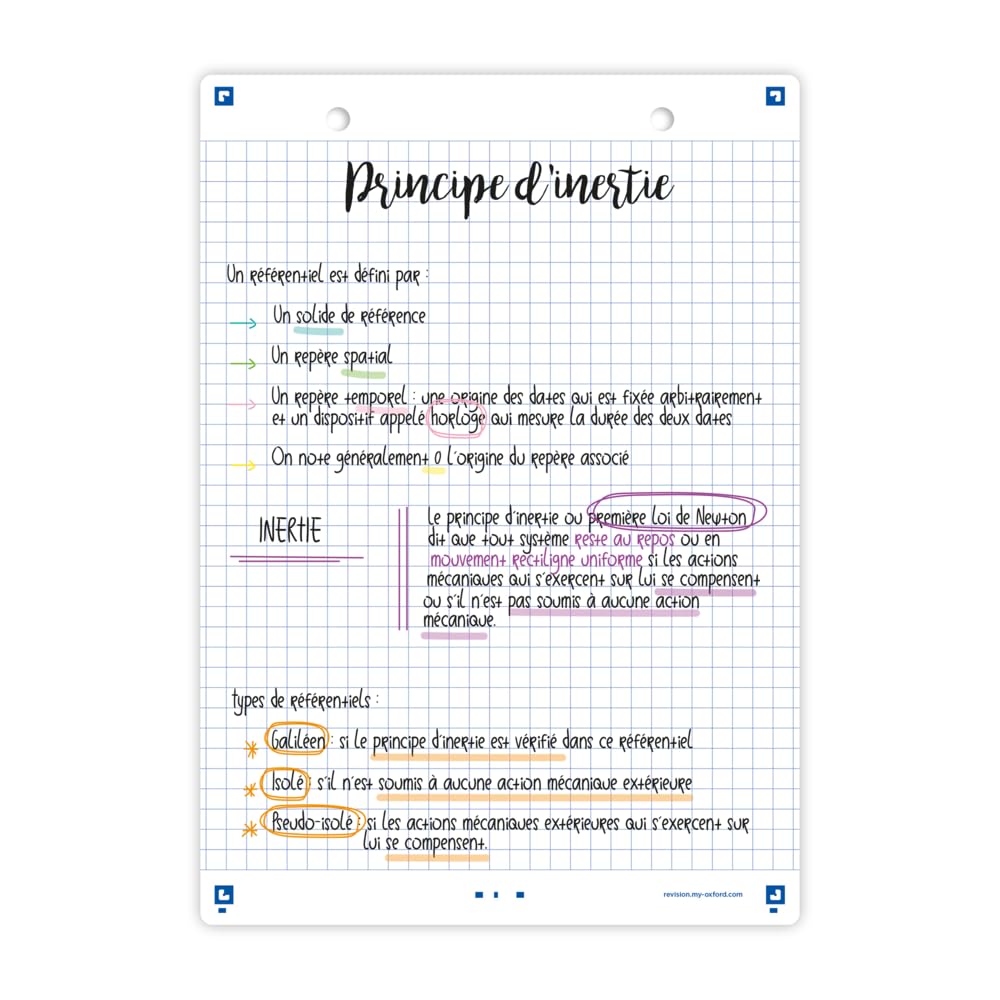 Principe d'inertie
Un référentiel est défini par :
→ Un solide de référence
→ Un repère spatial
→ Un repère temporel : une origine des dates qui est fixée arbitrairement
et un dispositif appelé horloge qui mesure la durée des deux dates
→ On note généralement O l'origine du repère associé
INERTIE
Le principe d'inertie ou première loi de Newton
dit que tout système reste au repos ou en
mouvement rectiligne uniforme si les actions
mécaniques qui s'exercent sur lui se compensent
ou s'il n'est pas soumis à aucune action
mécanique.
types de référentiels :
* Galiléen : si le principe d'inertie est vérifié dans ce référentiel
* Isolé : s'il n'est soumis à aucune action mécanique extérieure
* Pseudo-isolé : si les actions mécaniques extérieures qui s'exercent sur
lui se compensent.
revision.my-oxford.com